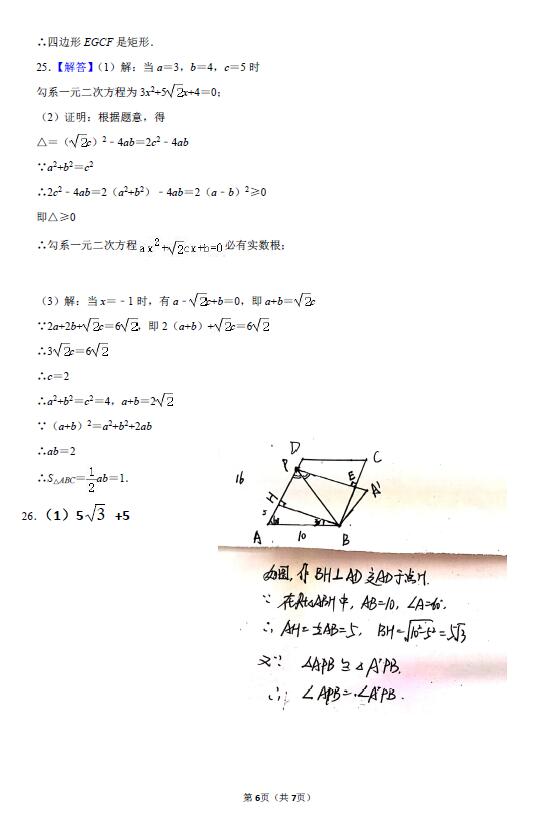 ∴四边形 EGCF 是矩形.
25.【解答】（1）解：当 a＝3，b＝4，c＝5 时
勾系一元二次方程为 3x²+5√2x+4＝0；
（2）证明：根据题意，得
△＝（√2c）²﹣4ab＝2c²﹣4ab
∵a²+b²＝c²
∴2c²﹣4ab＝2（a²+b²）﹣4ab＝2（a﹣b）²≥0
即△≥0
∴勾系一元二次方程 ax²+√2cx+b=0 必有实数根；
（3）解：当 x＝﹣1 时，有 a﹣√2c+b＝0，即 a+b＝√2c
∵2a+2b+√2c＝6√2，即 2（a+b）+√2c＝6√2
∴3√2c＝6√2
∴c＝2
∴a²+b²＝c²＝4，a+b＝2√2
∵（a+b）²＝a²+b²+2ab
∴ab＝2
∴S△ABC＝1/2ab＝1.
26.（1）5√3 +5
D
C
P
E
A'
16
H
5
A
10
B
如图, 作 BH⊥AD 交AD于点H.
∵ 在Rt△ABH中, AB=10, ∠A=60°.
∴ AH=½AB=5, BH=√10²-5²=5√3
又∵ △APB≌△A'PB.
∴ ∠APB=∠A'PB.
第 6页（共 7页）